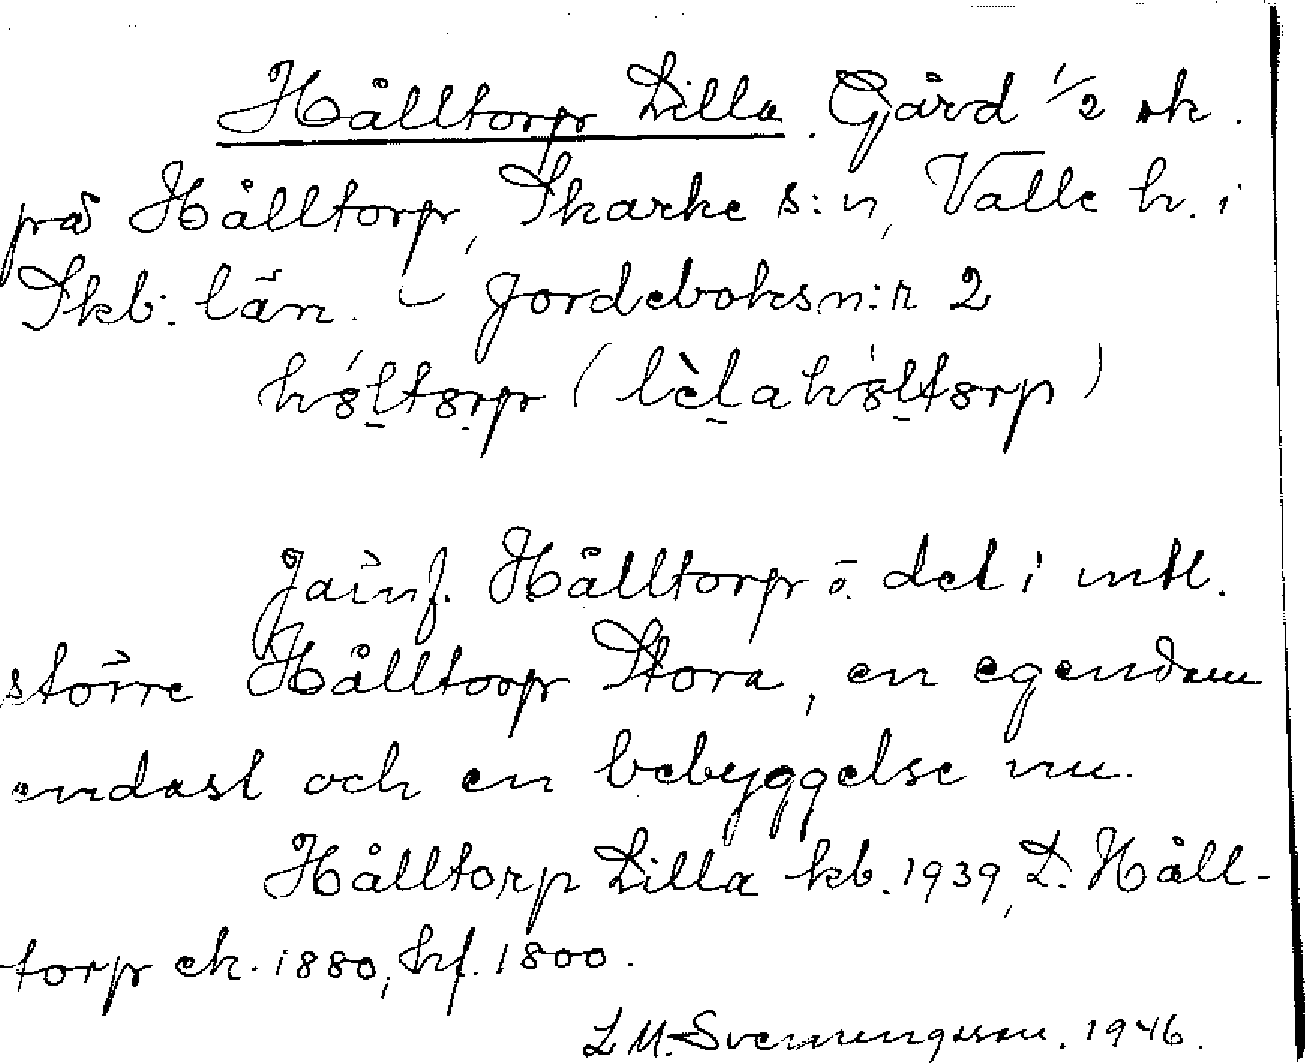 Hålltorp Lilla. Gård 1/2 sk.
på Hålltorp, Skarke s:n, Valle h. i
Skb. län. – Jordeboksn:r 2
hòltorp (lèlahòltorp)
Jämf. Hålltorp o. det i mtl.
större Hålltorp Stora, en egendom
endast och en bebyggelse nu.
Hålltorp Lilla kb. 1939, L. Håll-
torp ek. 1880, hf. 1800.
L M. Svenungsson. 1946.